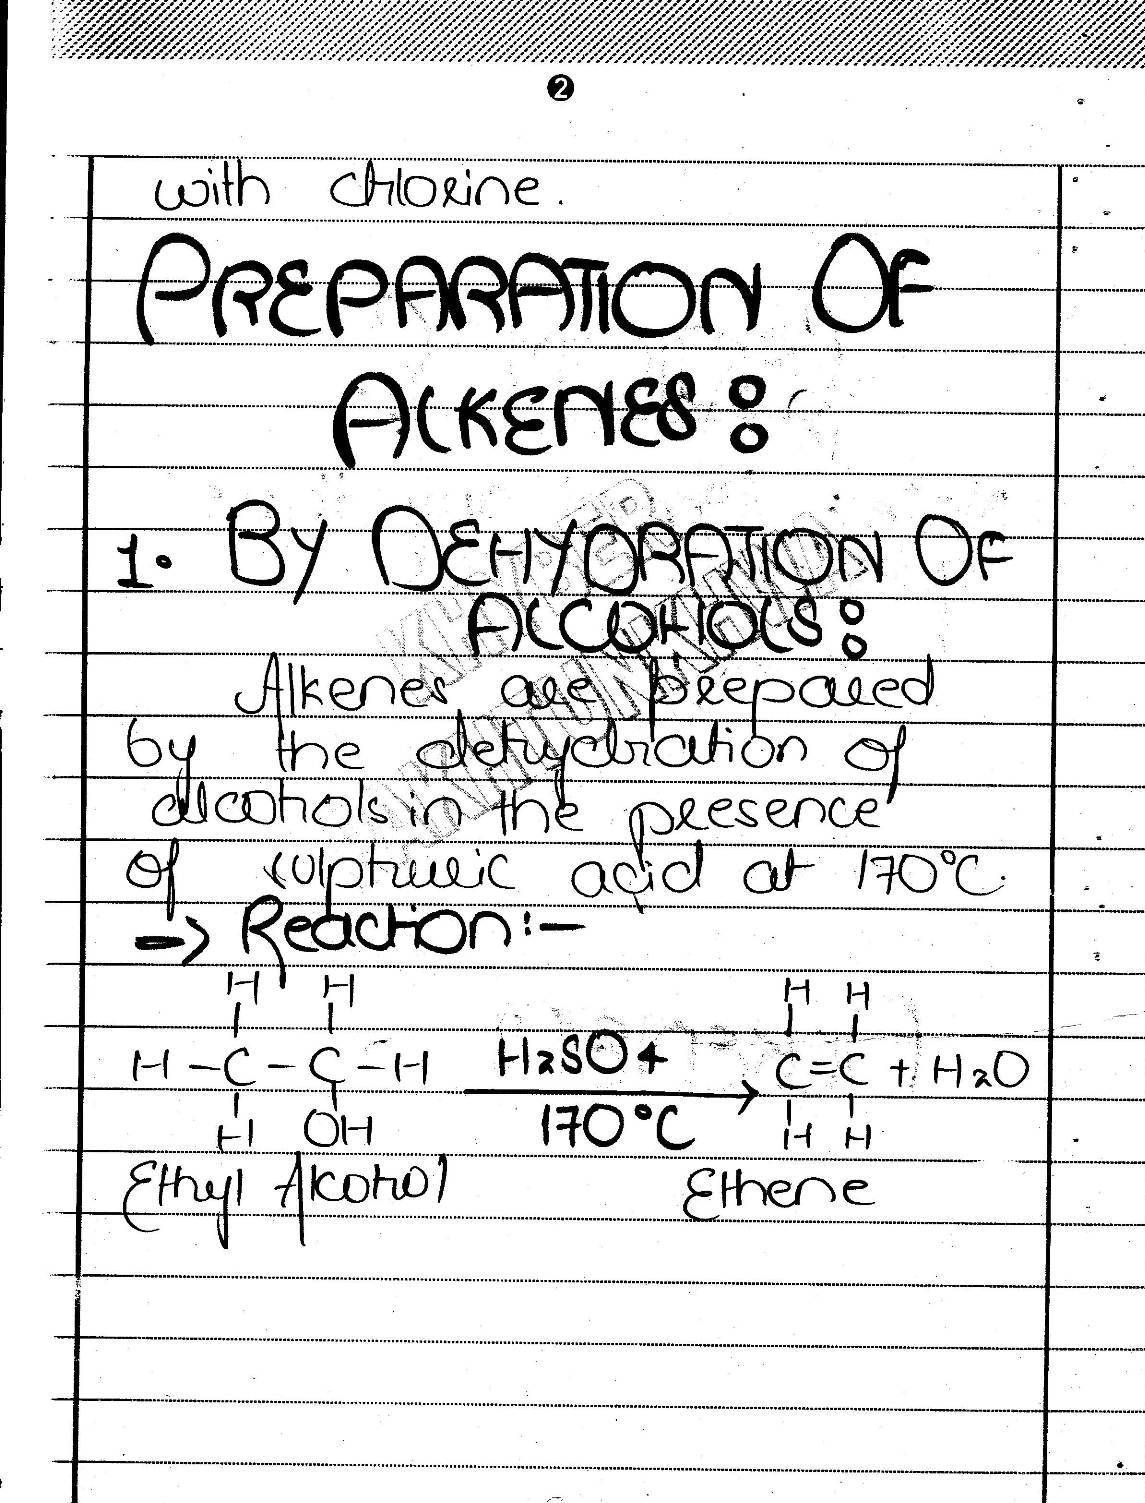 2
with chlorine.
PREPARATION OF
ALKENES:
1. BY DEHYDRATION OF
ALCOHOLS:
Alkenes are prepared
by the dehydration of
alcohols in the presence
of sulphuric acid at 170°C.
=> Reaction:-
H H H H
H-C-C-H H2SO4 C=C + H2O
H OH 170°C H H
Ethyl Alcohol Ethene
KHYBER
PAKHTUNKHWA